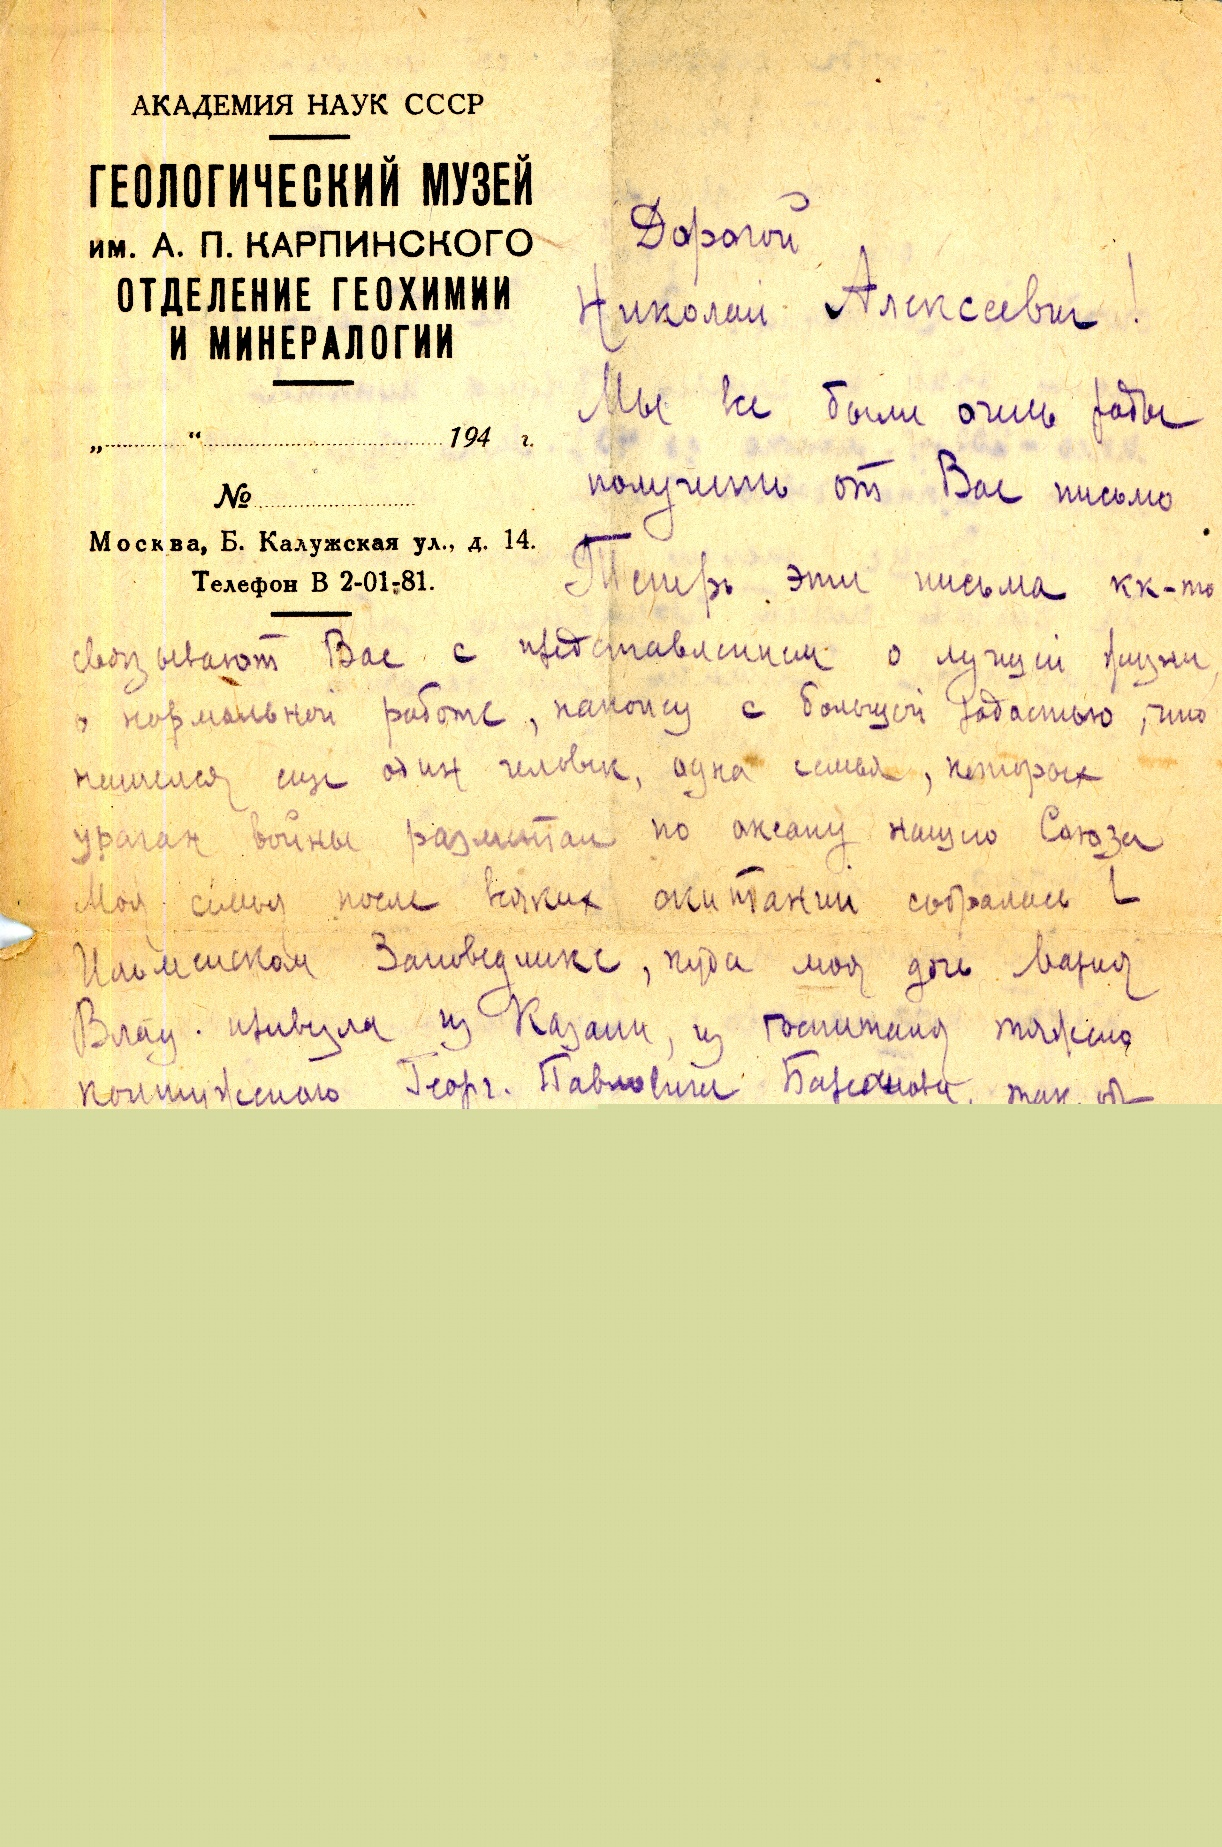 АКАДЕМИЯ НАУК СССР
ГЕОЛОГИЧЕСКИЙ МУЗЕЙ
им. А. П. КАРПИНСКОГО
ОТДЕЛЕНИЕ ГЕОХИМИИ
И МИНЕРАЛОГИИ
„ “ 194 г.
№
Москва, Б. Калужская ул., д. 14.
Телефон В 2-01-81.
Дорогой
Николай Алексеевич!
Мы все были очень рады
получить от Вас письмо
Теперь эти письма кк-то
связывают Вас с представлением о лучшей жизни,
о нормальной работе, нахожу с большой радостью, что
нашелся еще один человек, одна семья, которых
ураган войны разметал по океану нашего Союза
Моя семья после всяких скитаний собралась в
Ильменском Заповеднике, куда моя дочь Мария
Влад. привезла из Казани, из госпиталя тяжело
контуженого Георг. Павловича Барсанова, так